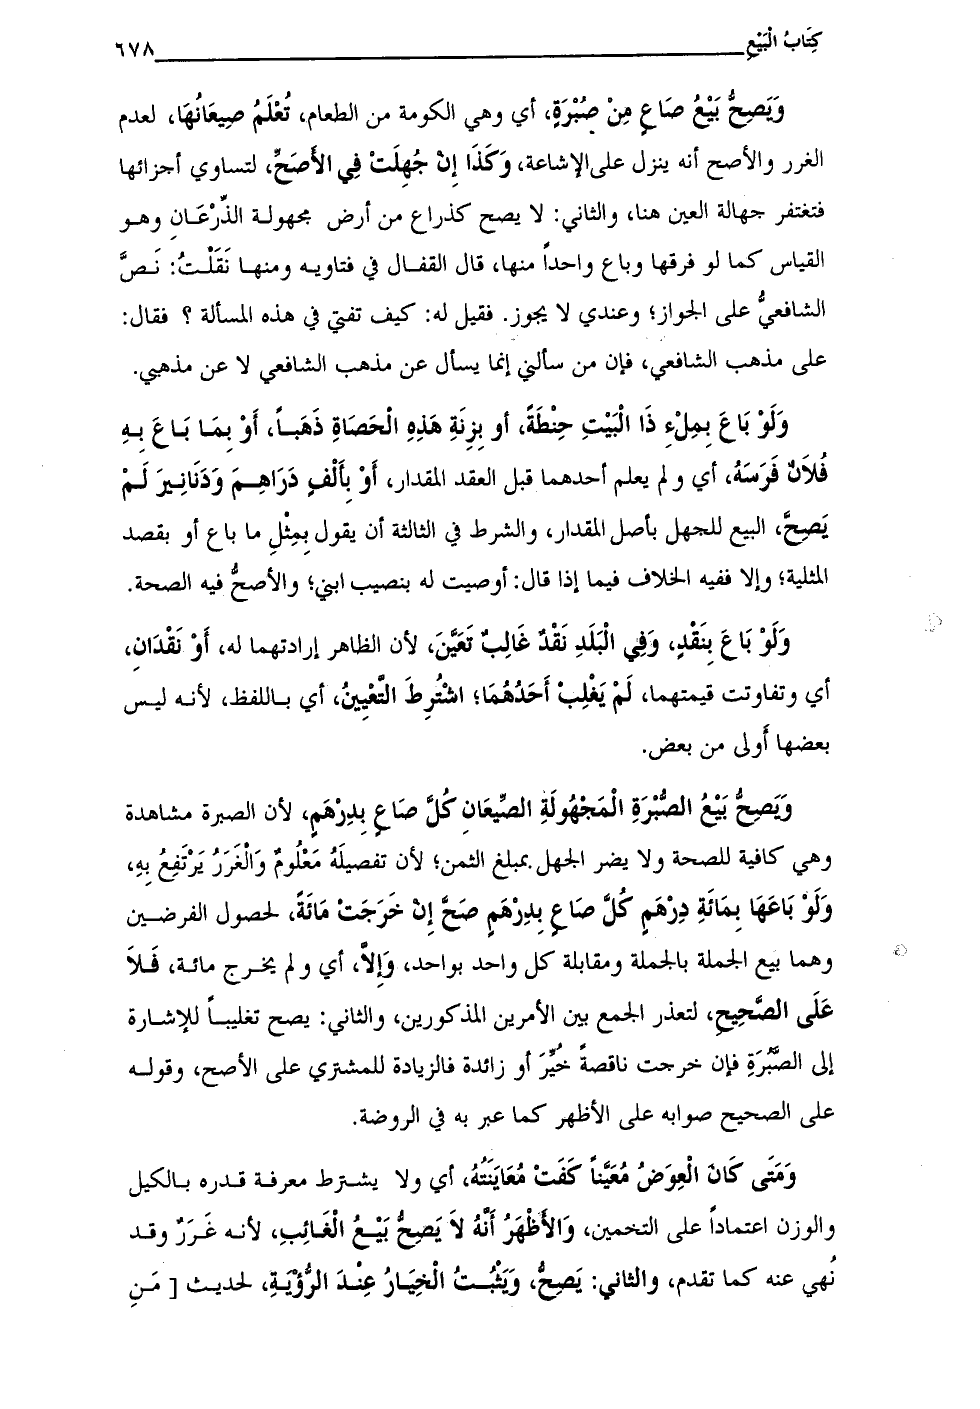 كِتَابُ الْبَيْعِ ٦٧٨
وَيَصِحُّ بَيْعُ صَاعٍ مِنْ صُبْرَةٍ، أي وهي الكومة من الطعام، تُعْلَمُ صِيعَانُهَا، لعدم
الغرر والأصح أنه ينزل على الإشاعة، وَكَذَا إِنْ جُهِلَتْ فِي الأَصَحِّ، لتساوي أجزائها
فتغتفر جهالة العين هنا، والثاني: لا يصح كذراع من أرض مجهولة الذِّرْعَانِ وهو
القياس كما لو فرقها وباع واحداً منها، قال القفال في فتاويه ومنها نَقَلْتُ: نَصَّ
الشافعيُّ على الجواز؛ وعندي لا يجوز. فقيل له: كيف تفتي في هذه المسألة ؟ فقال:
على مذهب الشافعي، فإن من سألني إنما يسأل عن مذهب الشافعي لا عن مذهبي.
وَلَوْ بَاعَ بِمِلْءِ ذَا الْبَيْتِ حِنْطَةً، أو بِزِنَةِ هَذِهِ الْحَصَاةِ ذَهَباً، أَوْ بِمَا بَاعَ بِهِ
فُلاَنٌ فَرَسَهُ، أي ولم يعلم أحدهما قبل العقد المقدار، أَوْ بِأَلْفٍ دَرَاهِمَ وَدَنَانِيرَ لَمْ
يَصِحَّ، البيع للجهل بأصل المقدار، والشرط في الثالثة أن يقول بِمِثْلِ ما باع أو بقصد
المثلية؛ وإلا ففيه الخلاف فيما إذا قال: أوصيت له بنصيب ابني؛ والأصحُّ فيه الصحة.
وَلَوْ بَاعَ بِنَقْدٍ، وَفِي الْبَلَدِ نَقْدٌ غَالِبٌ تَعَيَّنَ، لأن الظاهر إرادتهما له، أَوْ نَقْدَانِ،
أي وتفاوتت قيمتهما، لَمْ يَغْلِبْ أَحَدُهُمَا؛ اشْتُرِطَ التَّعْيِينُ، أي باللفظ، لأنه ليس
بعضها أَولى من بعض.
وَيَصِحُّ بَيْعُ الصُّبْرَةِ الْمَجْهُولَةِ الصِّيْعَانِ كُلَّ صَاعٍ بِدِرْهَمٍ، لأن الصبرة مشاهدة
وهي كافية للصحة ولا يضر الجهل بمبلغ الثمن؛ لأن تفصيلَهُ مَعْلُومٌ وَالْغَرَرُ يَرْتَفِعُ بِهِ،
وَلَوْ بَاعَهَا بِمَائَةِ دِرْهَمٍ كُلَّ صَاعٍ بِدِرْهَمٍ صَحَّ إِنْ خَرَجَتْ مَائَةً، لحصول الفرضين
وهما بيع الجملة بالجملة ومقابلة كل واحد بواحد، وَإِلاَّ، أي ولم يخرج مائة، فَلاَ
عَلَى الصَّحِيحِ، لتعذر الجمع بين الأمرين المذكورين، والثاني: يصح تغليباً للإشارة
إلى الصُّبْرَةِ فإن خرجت ناقصةً خُيِّرَ أو زائدة فالزيادة للمشتري على الأصح، وقوله
على الصحيح صوابه على الأظهر كما عبر به في الروضة.
وَمَتَى كَانَ الْعِوَضُ مُعَيَّناً كَفَتْ مُعَايَنَتُهُ، أي ولا يشترط معرفة قدره بالكيل
والوزن اعتماداً على التخمين، وَالأَظْهَرُ أَنَّهُ لاَ يَصِحُّ بَيْعُ الْغَائِبِ، لأنه غَرَرٌ وقد
نُهي عنه كما تقدم، والثاني: يَصِحُّ، وَيَثْبُتُ الْخِيَارُ عِنْدَ الرُّؤْيَةِ، لحديث [ مَنِ